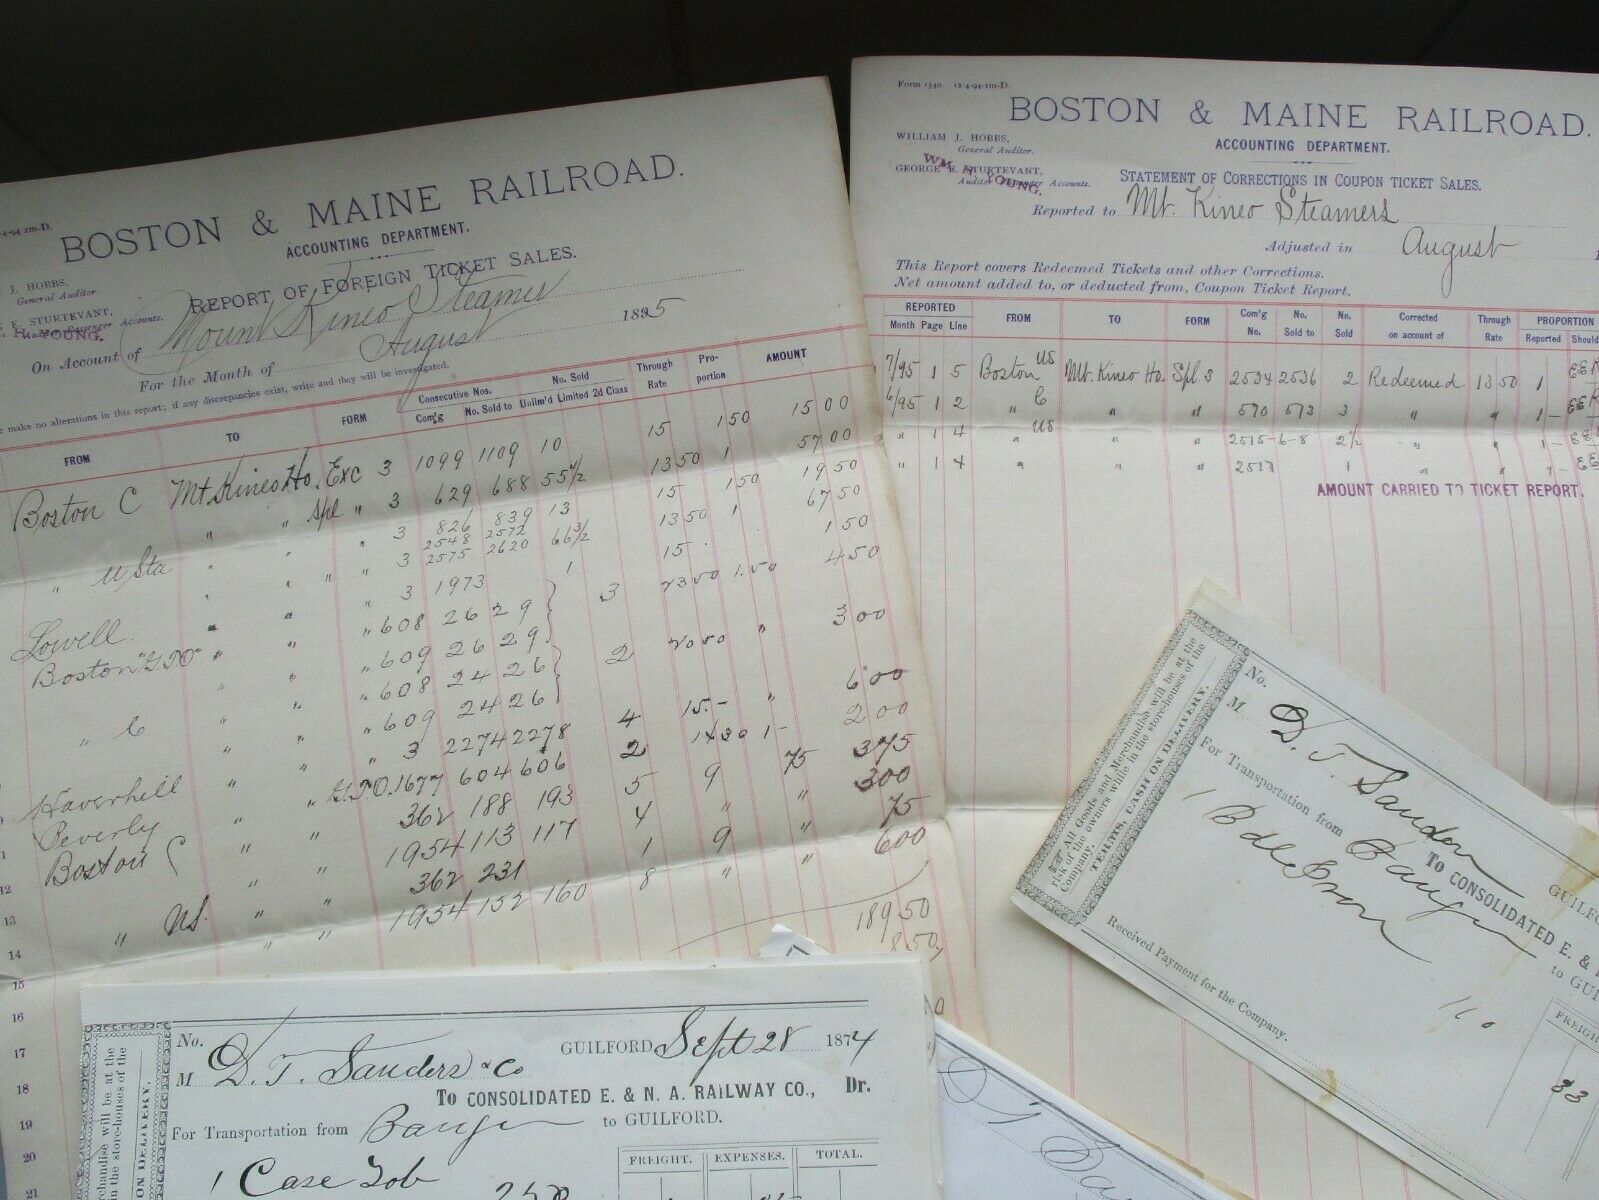 4-94 2m-D.
BOSTON & MAINE RAILROAD.
ACCOUNTING DEPARTMENT.
J. HOBBS,
General Auditor.
REPORT OF FOREIGN TICKET SALES.
E. STURTEVANT,
Passenger Accounts.
YOUNG.
On Account of Mount Kineo Steamer
For the Month of August 1895
make no alterations in this report; if any discrepancies exist, write and they will be investigated.
FROM TO FORM Consecutive Nos. No. Sold Through Rate Pro-portion AMOUNT
Com'g No. Sold to Unlim'd Limited 2d Class
Boston C Mt Kineo Ho. Exc 3 1099 1109 10 15 1 50 15 00
" " Spl " 3 629 688 55 1/2 13 50 1 57 00
" U Sta " " " 3 826 839 13 15 1 50 19 50
2548 2572
" " " 3 2575 2620 66 1/2 13 50 1 67 50
Lowell " " " 3 1973 1 15 1 50
Boston " " " 608 2629 } 3 1.50 4 50
" " " 609 2629
" C " " " 608 2426 } 2 " 3 00
" " " 609 2426
Haverhill " " " 3 2274 2278 4 15.- " 6 00
Beverly " " 1677 604 606 2 1- 2 00
Boston C " " 362 188 193 5 9 75 3 75
" " 1954 113 117 4 " " 3 00
" " 362 231 1 9 " 75
" US. " " 1954 152 160 8 " " 6 00
189 50
8 50
12
13
14
15
16
17
18
19
20
21
Form 1340 12-4-94-1m-D.
BOSTON & MAINE RAILROAD.
WILLIAM J. HOBBS,
General Auditor.
ACCOUNTING DEPARTMENT.
GEORGE E. STURTEVANT,
Auditor Passenger Accounts.
WM. H. YOUNG.
STATEMENT OF CORRECTIONS IN COUPON TICKET SALES.
Reported to Mt. Kineo Steamers
Adjusted in August
This Report covers Redeemed Tickets and other Corrections.
Net amount added to, or deducted from, Coupon Ticket Report.
REPORTED FROM TO FORM Com'g No. No. Sold to No. Sold Corrected on account of Through Rate PROPORTION
Month Page Line Reported Should
7/95 1 5 Boston US Mt. Kineo Ho. Spl 3 2534 2536 2 Redeemed 13 50 1
6/95 1 2 " C " " 570 573 3 " " 1-
" 1 4 " US " " 2515-6-8 2 1/2 " " 1-
" 1 4 " " " 2517 1 " " 1-
AMOUNT CARRIED TO TICKET REPORT.
All Goods and Merchandise will be at the
risk of the owners while in the store-houses of the
Company.
TERMS, CASH ON DELIVERY.
No.
M D. T. Sanders
To CONSOLIDATED E. &
GUILFO
For Transportation from Bangor
to GUI
1 Bdl Iron
110
Received Payment for the Company.
FREIGH
33
chandise will be at the
in the store-houses of the
ON DELIVERY.
No.
GUILFORD Sept 28 1874
M D. T. Sanders & Co
To CONSOLIDATED E. & N. A. RAILWAY CO., Dr.
For Transportation from Bangor to GUILFORD.
FREIGHT. EXPENSES. TOTAL.
1 Case Tob